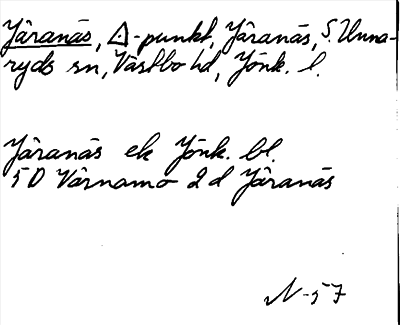 Jâranäs, △-punkt, Jâranäs, S. Unna-
ryds sn, Västbo hd, Jönk. l.
Jâranäs ek Jönk. bl.
5D Värnamo 2d Jâranäs
N-57